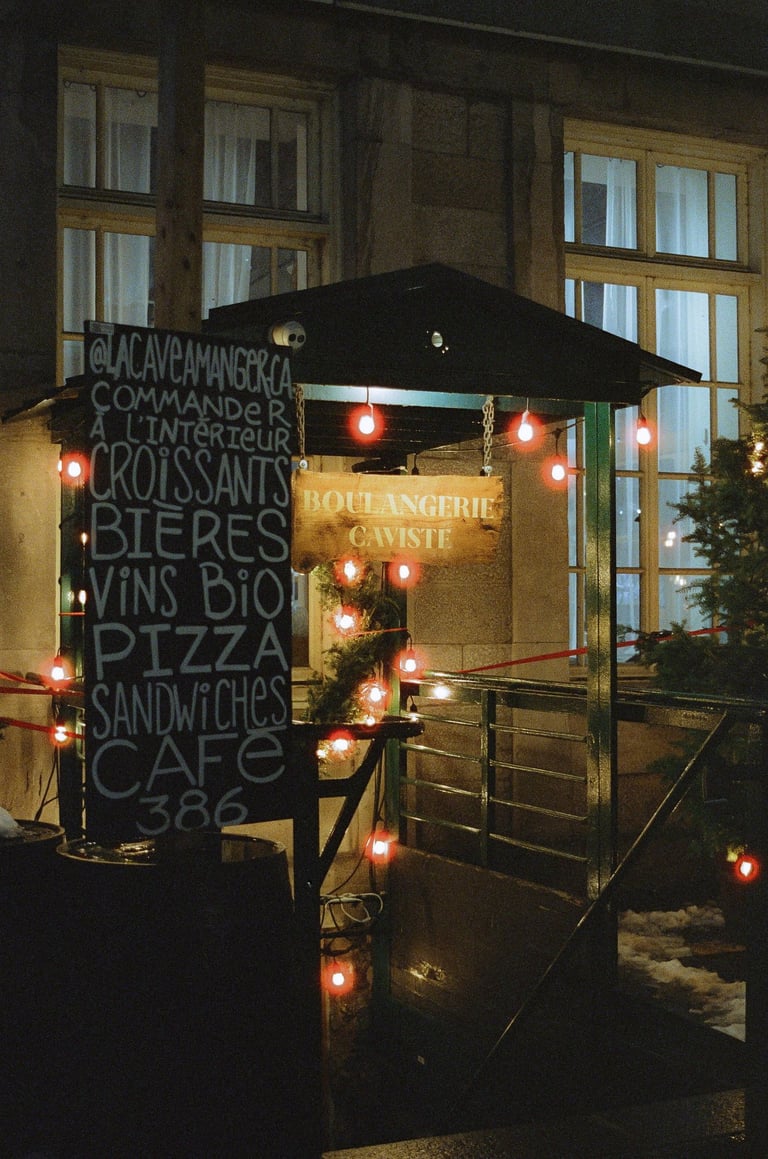 @LACAVEAMANGER.CA
COMMANDER
À L'INTÉRIEUR
CROISSANTS
BIÈRES
VINS BIO
PIZZA
SANDWICHES
CAFÉ
386
BOULANGERIE
CAVISTE